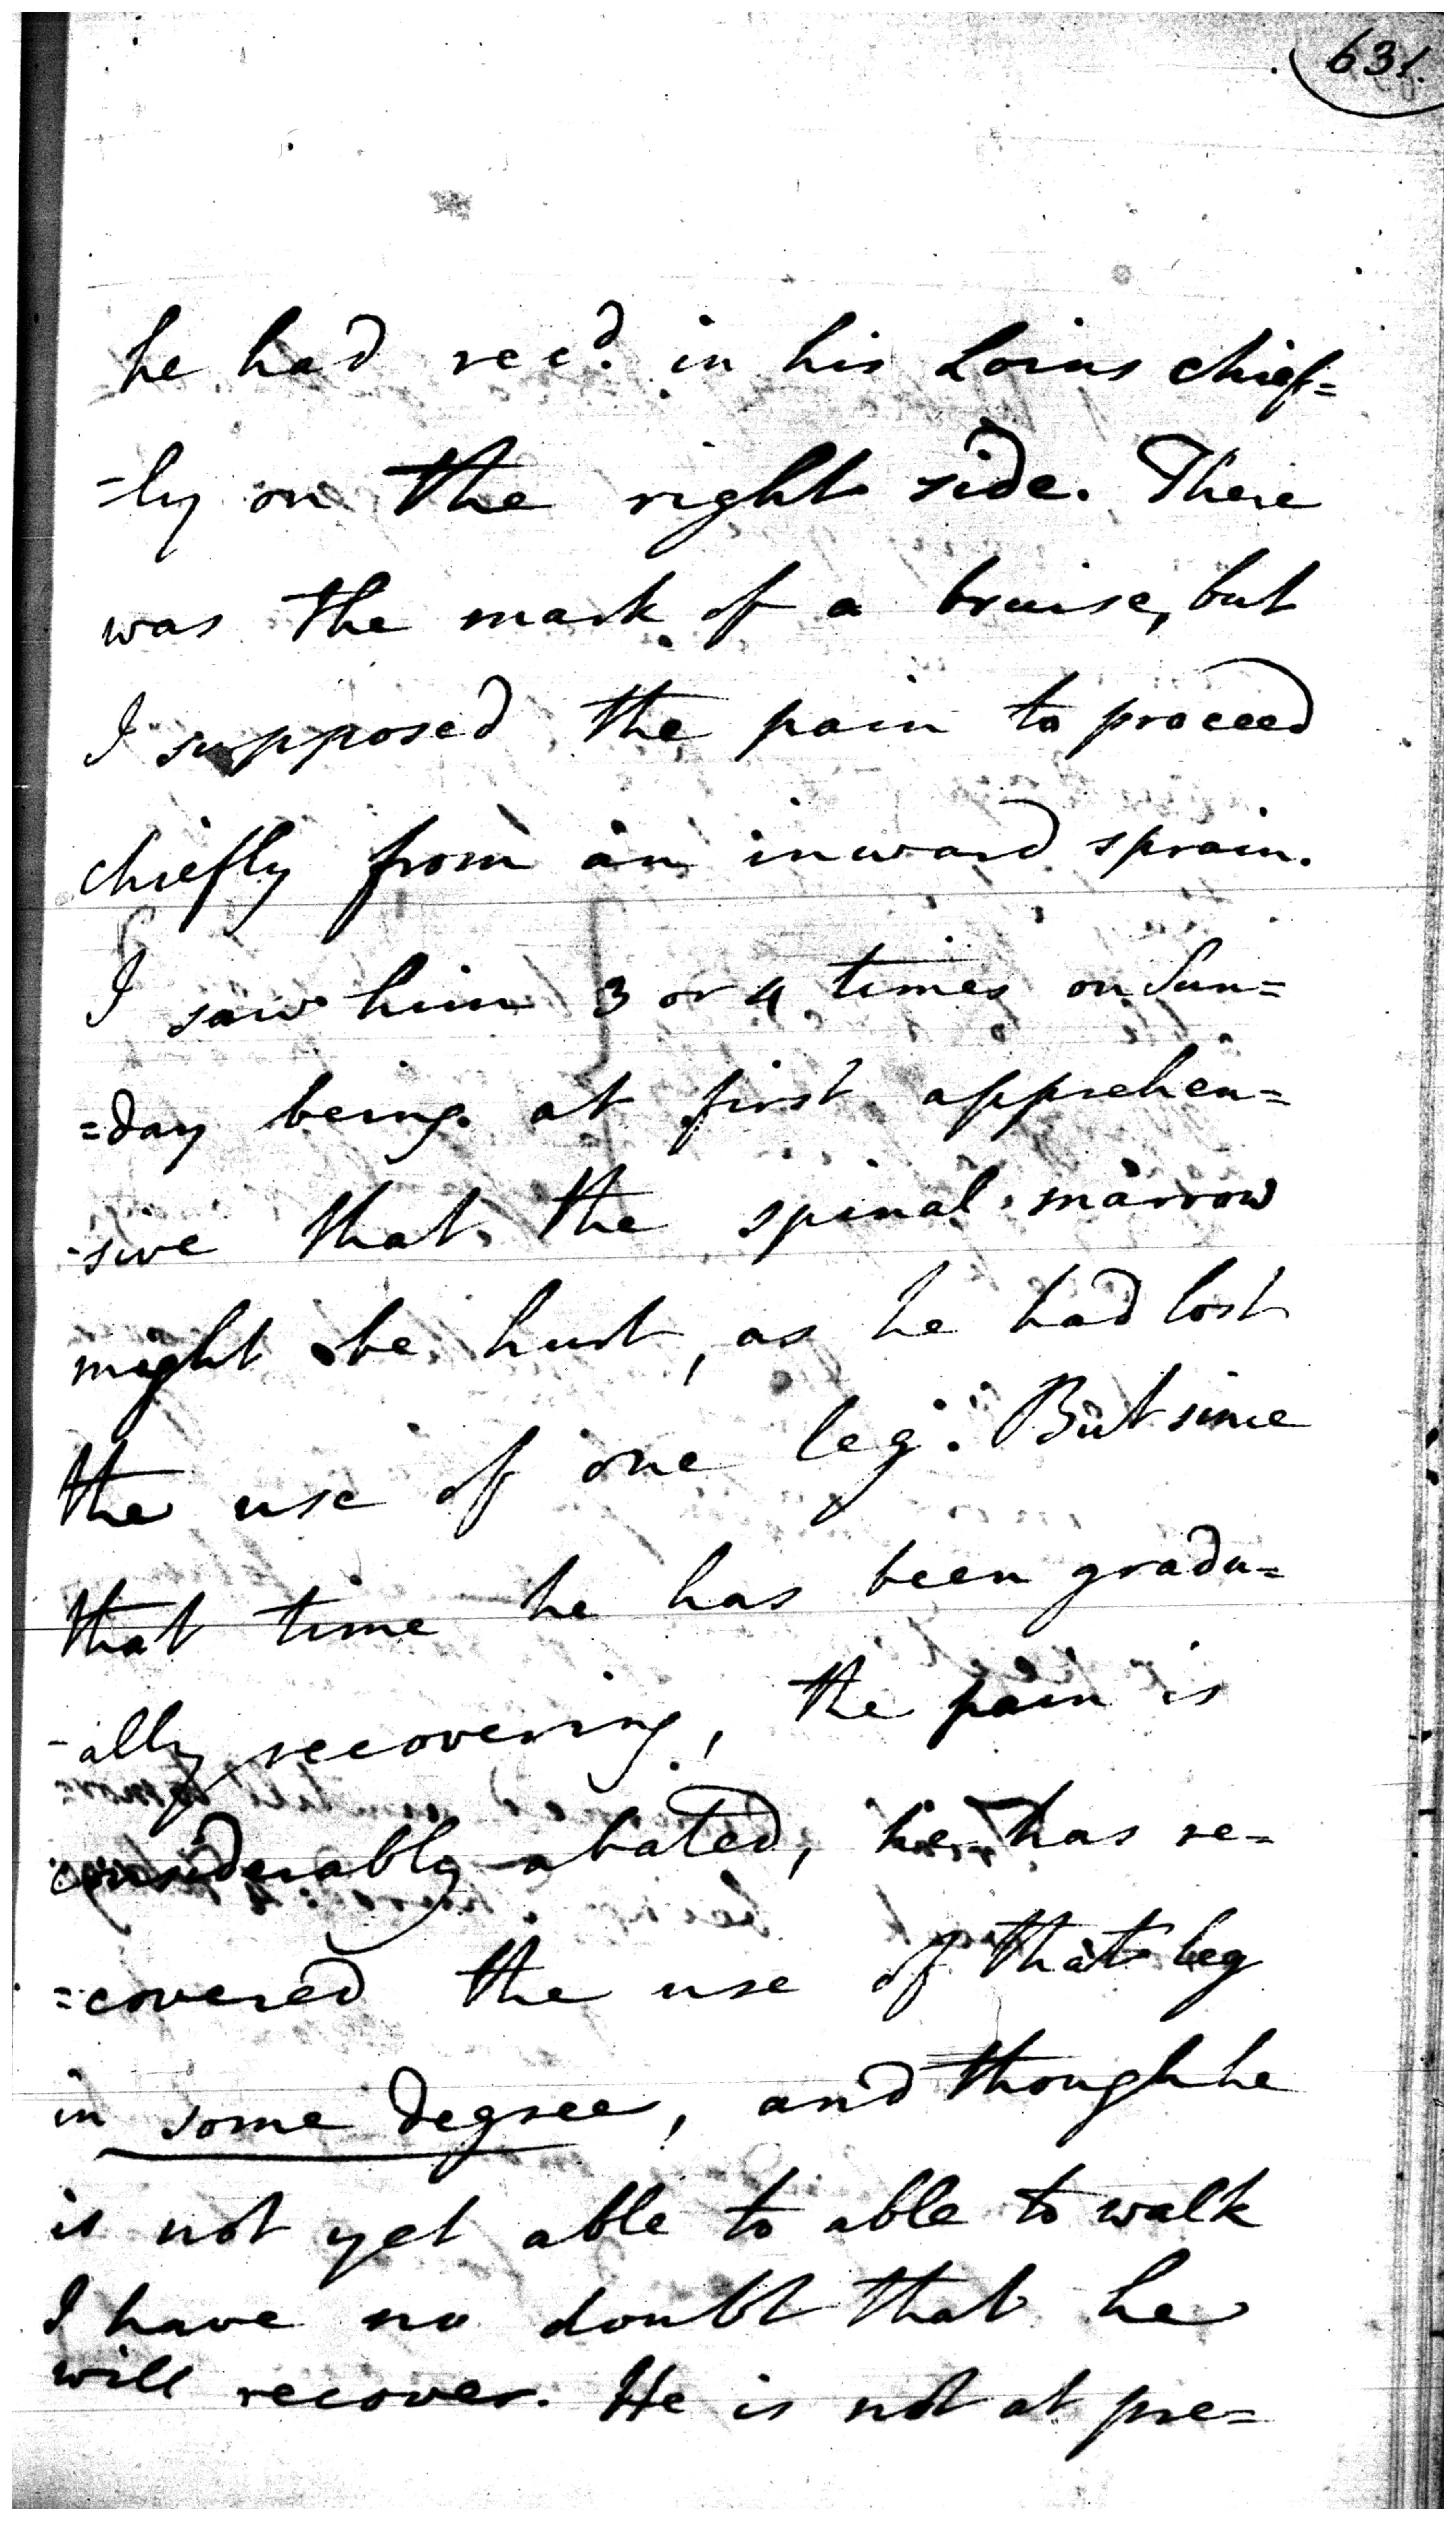 631.
he had recd. in his Loins chief=
-ly on the right side. There
was the mark of a bruise, but
I supposed the pain to proceed
chiefly from an inward sprain.
I saw him 3 or 4 times on Sun=
=day being at first apprehen=
-sive that the spinal marrow
might be hurt, as he had lost
the use of one leg. But since
that time he has been gradu=
-ally recovering, the pain is
considerably abated, he has re=
=covered the use of that leg
in some degree, and though he
is not yet able to able to walk
I have no doubt that he
will recover. He is not at pre=